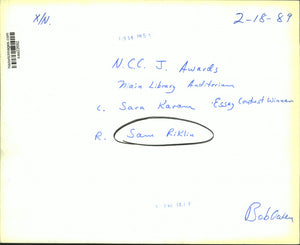 X/N. 2-18-89
N.C.C. J. Awards
Main Library Auditorium
L. Sara Karam Essay Contest Winner
R. Sam Riklin
Bob